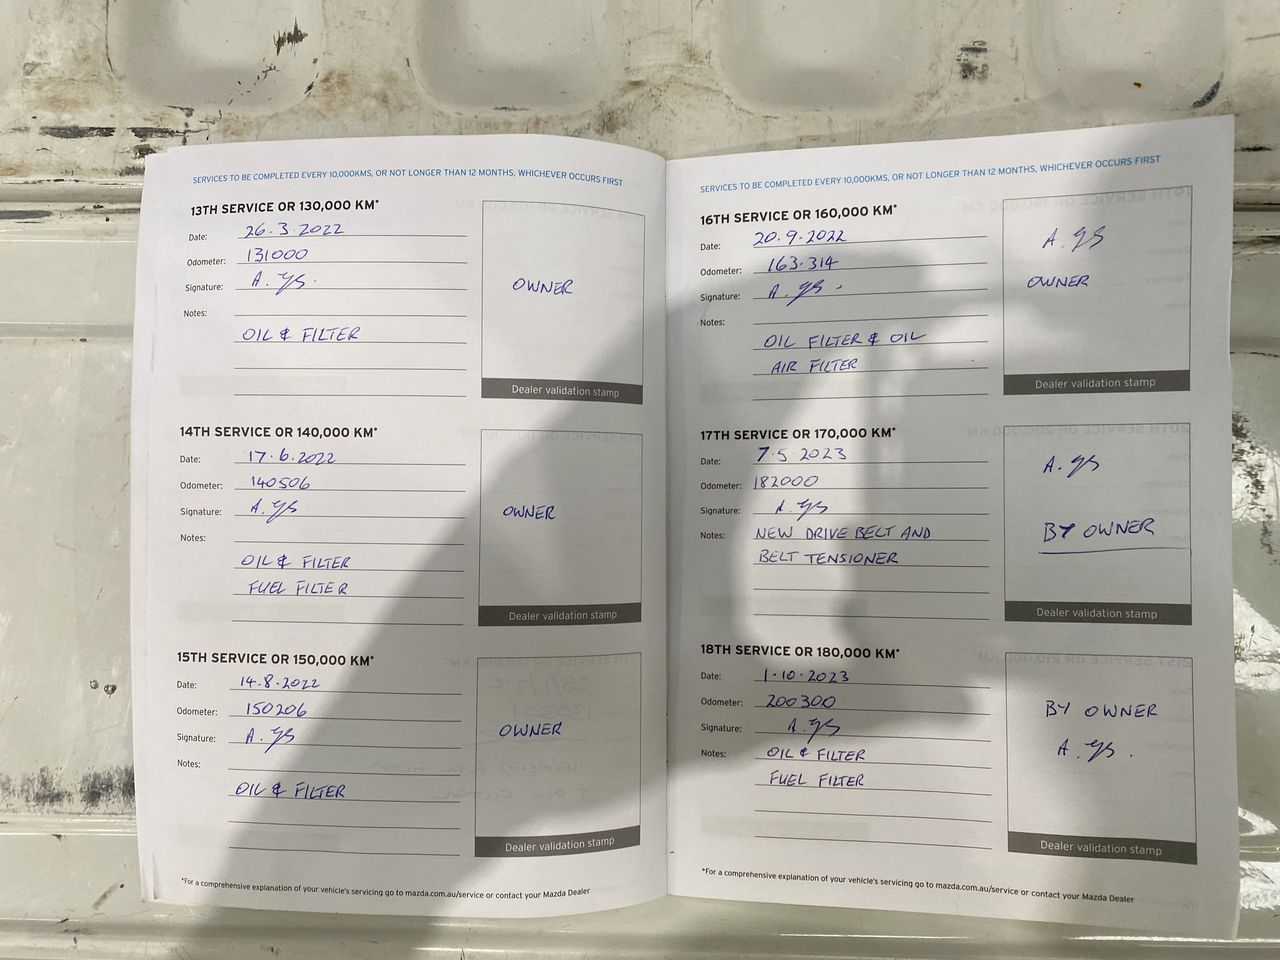 SERVICES TO BE COMPLETED EVERY 10,000KMS, OR NOT LONGER THAN 12 MONTHS, WHICHEVER OCCURS FIRST
13TH SERVICE OR 130,000 KM*
Date: 26.3.2022
Odometer: 131000
Signature: A. gs.
OWNER
Notes:
OIL & FILTER
Dealer validation stamp
14TH SERVICE OR 140,000 KM*
Date: 17.6.2022
Odometer: 140506
Signature: A. gs
OWNER
Notes:
OIL & FILTER
FUEL FILTER
Dealer validation stamp
15TH SERVICE OR 150,000 KM*
Date: 14.8.2022
Odometer: 150206
Signature: A. gs
OWNER
Notes:
OIL & FILTER
Dealer validation stamp
*For a comprehensive explanation of your vehicle's servicing go to mazda.com.au/service or contact your Mazda Dealer
SERVICES TO BE COMPLETED EVERY 10,000KMS, OR NOT LONGER THAN 12 MONTHS, WHICHEVER OCCURS FIRST
16TH SERVICE OR 160,000 KM*
Date: 20.9.2022
A. gs
Odometer: 163.314
OWNER
Signature: A. gs.
Notes:
OIL FILTER & OIL
AIR FILTER
Dealer validation stamp
17TH SERVICE OR 170,000 KM*
Date: 7.5.2023
A. gs
Odometer: 182000
Signature: A. gs
Notes: NEW DRIVE BELT AND
BY OWNER
BELT TENSIONER
Dealer validation stamp
18TH SERVICE OR 180,000 KM*
Date: 1.10.2023
Odometer: 200300
BY OWNER
Signature: A. gs
A. gs.
Notes: OIL & FILTER
FUEL FILTER
Dealer validation stamp
*For a comprehensive explanation of your vehicle's servicing go to mazda.com.au/service or contact your Mazda Dealer